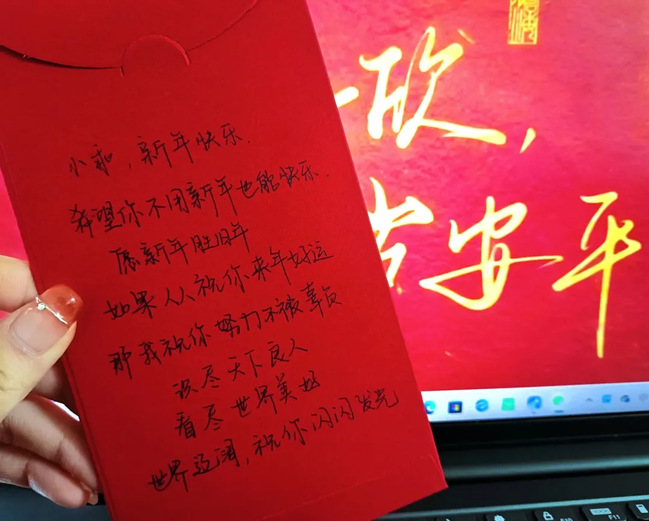 小乖，新年快乐.
希望你不用新年也能快乐.
愿新年胜旧年
如果人人祝你来年好运
那我祝你努力不被辜负
谈尽天下良人
看尽世界美好
世界辽阔，祝你闪闪发光
欣，
岁安平
F11